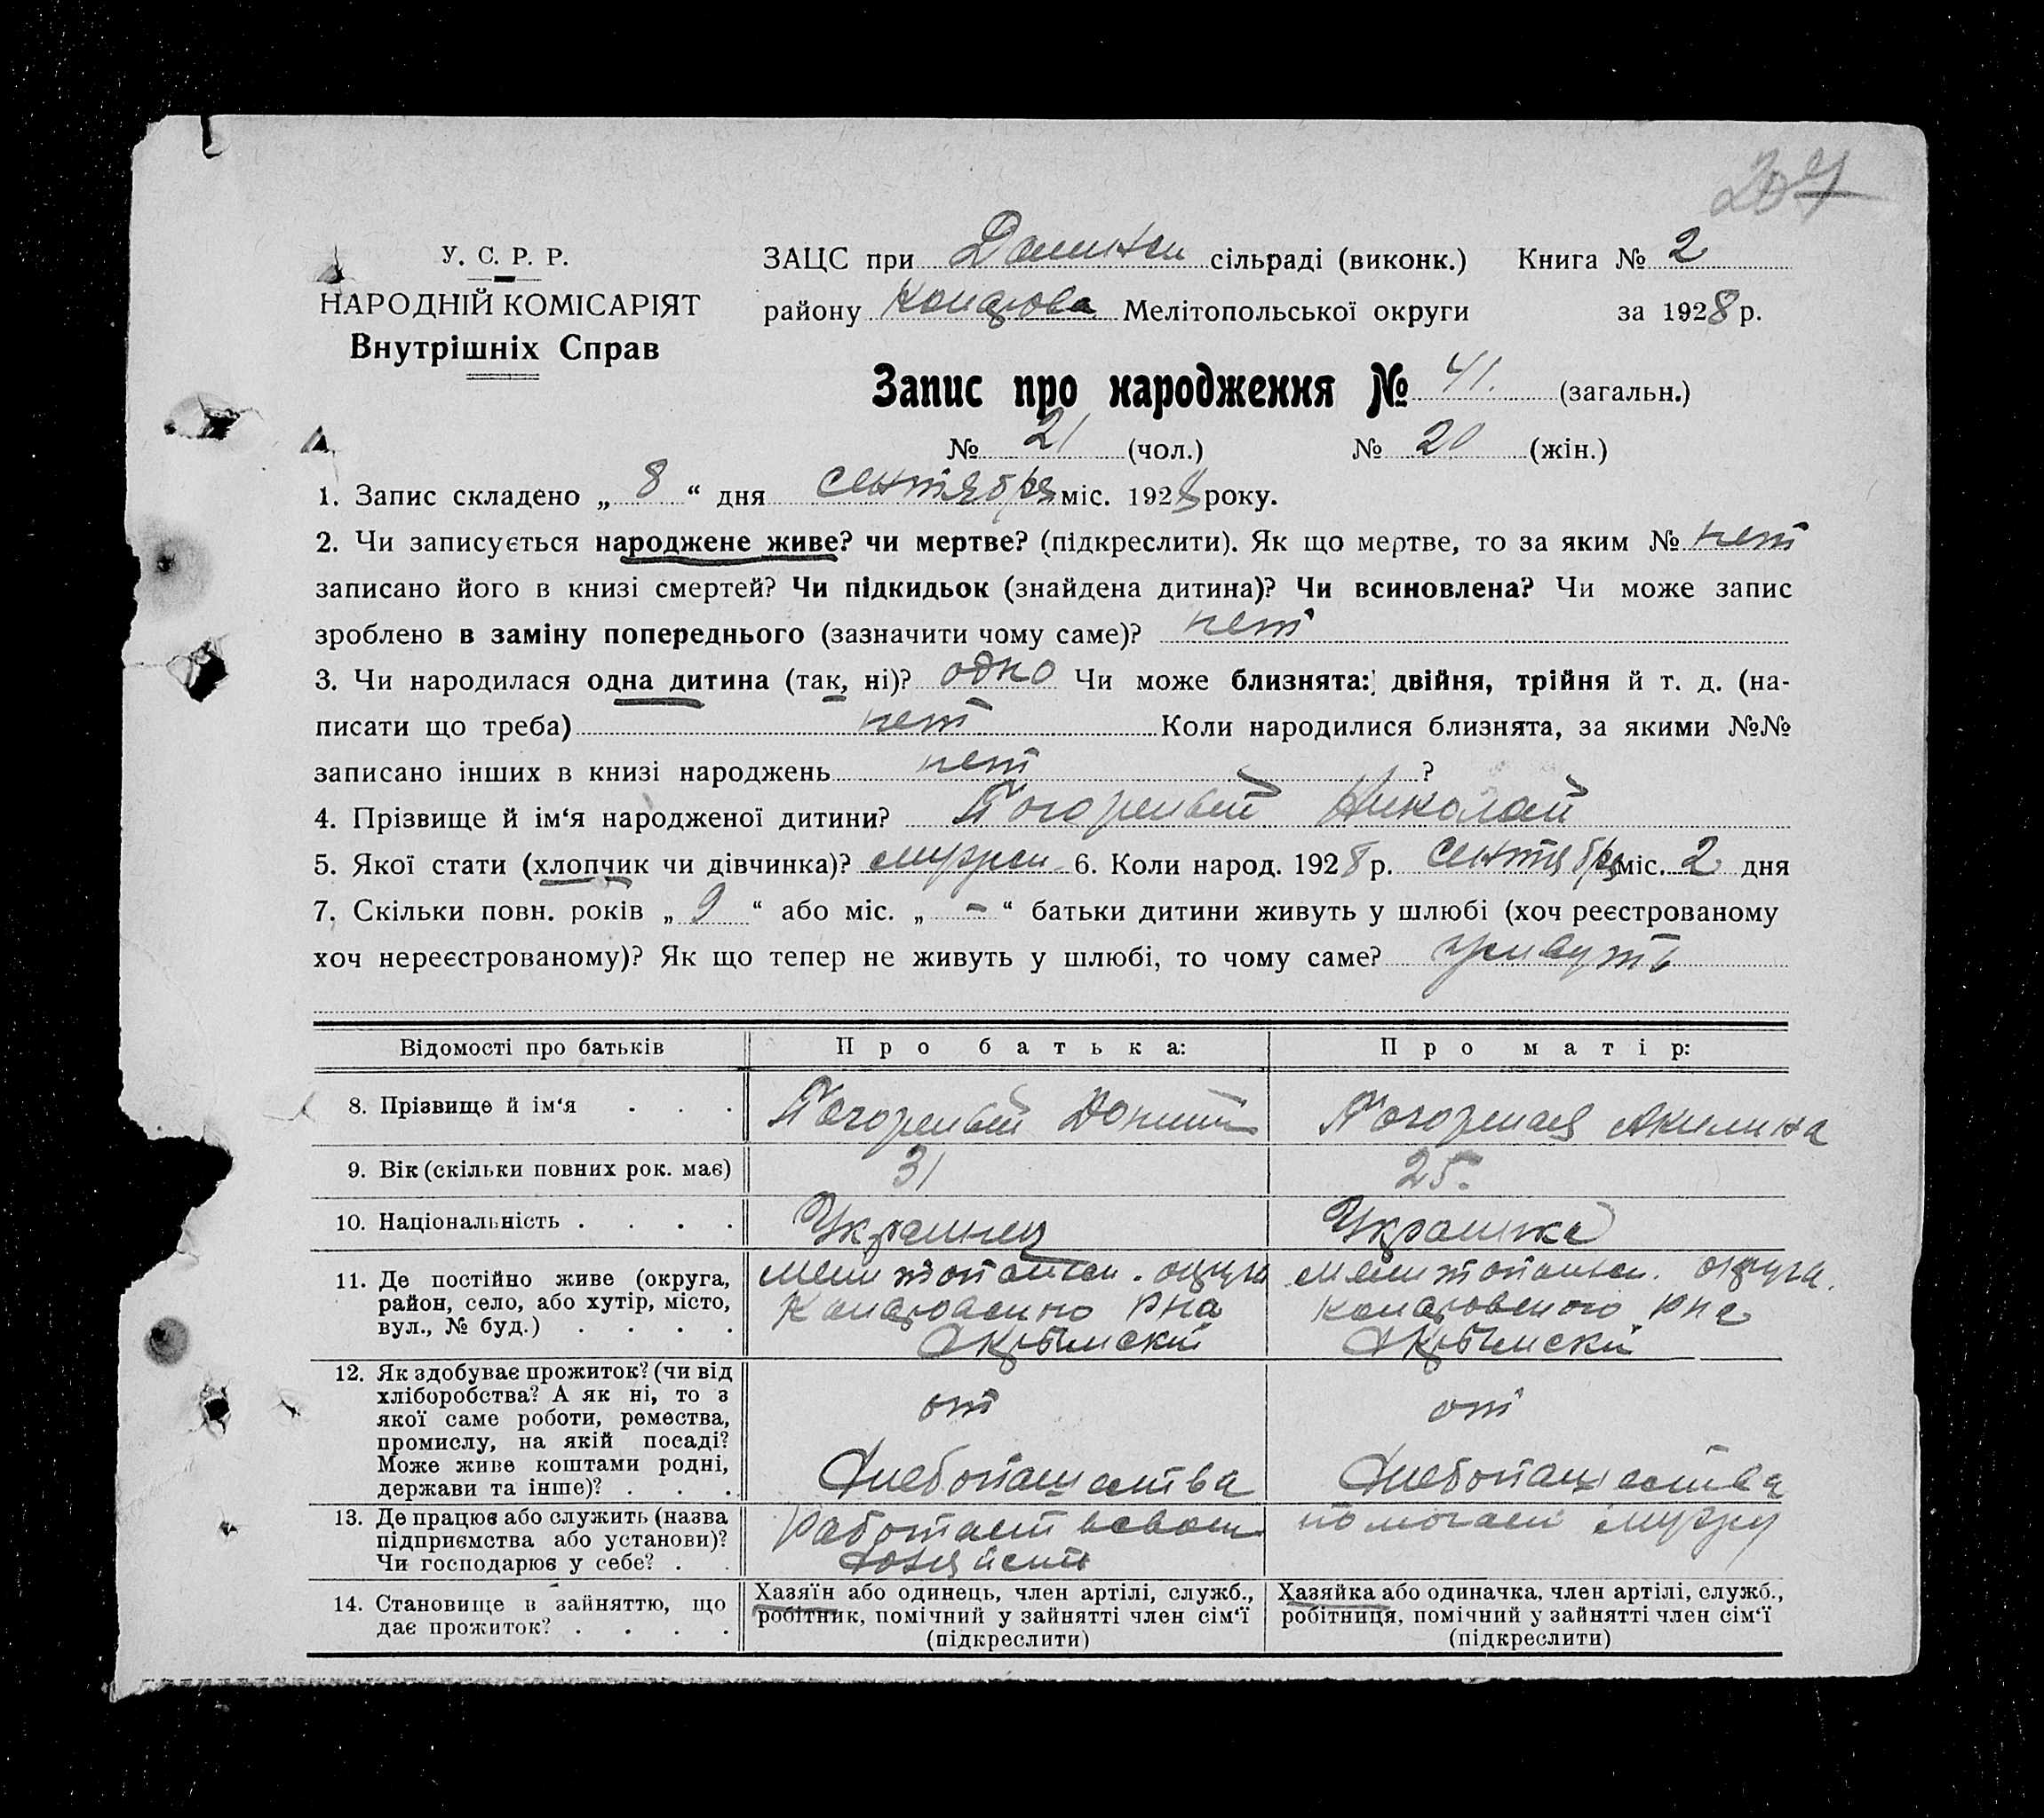 У. С. Р. Р.
НАРОДНІЙ КОМІСАРІЯТ
Внутрішніх Справ
ЗАЦС при сільраді (виконк.) Книга № 2
району Мелітопольської округи за 1928 р.
Запис про народження № 41. (загальн.)
№ 21 (чол.) № 20 (жін.)
1. Запис складено „ 8 “ дня сентября міс. 1928 року.
2. Чи записується народжене живе? чи мертве? (підкреслити). Як що мертве, то за яким № нет
записано його в книзі смертей? Чи підкидьок (знайдена дитина)? Чи всиновлена? Чи може запис
зроблено в заміну попереднього (зазначити чому саме)? нет
3. Чи народилася одна дитина (так, ні)? одно Чи може близнята: двійня, трійня й т. д. (на-
писати що треба) нет Коли народилися близнята, за якими №№
записано інших в книзі народжень нет ?
4. Прізвище й ім‘я народженої дитини? Погорелый Николай
5. Якої стати (хлопчик чи дівчинка)? мужжск 6. Коли народ. 1928 р. сентября міс. 2 дня
7. Скільки повн. років „ 9 “ або міс. „ - “ батьки дитини живуть у шлюбі (хоч реєстрованому
хоч нереєстрованому)? Як що тепер не живуть у шлюбі, то чому саме? живуть
Відомості про батьків Про батька: Про матір:
8. Прізвище й ім‘я . . . Погорелый Погорелая Акилина
9. Вік (скільки повних рок. має) 31 25.
10. Національність . . . . Украинец Украинка
11. Де постійно живе (округа,
район, село, або хутір, місто,
вул., № буд.) . . . .
Мелитопольск. округа
р на
Мелитопольск. округа.
р на
12. Як здобуває прожиток? (чи від
хліборобства? А як ні, то з
якої саме роботи, ремества,
промислу, на якій посаді?
Може живе коштами родні,
держави та інше)? . . .
от
Хлебопашества
от
Хлебопашества
13. Де працює або служить (назва
підприємства або установи)?
Чи господарює у себе? . .
Работает в своем
хозяйстве
помогает мужу
14. Становище в зайняттю, що
дає прожиток? . . . .
Хазяїн або одинець, член артілі, служб.,
робітник, помічний у зайнятті член сім‘ї
(підкреслити)
Хазяйка або одиначка, член артілі, служб.,
робітниця, помічний у зайнятті член сім‘ї
(підкреслити)